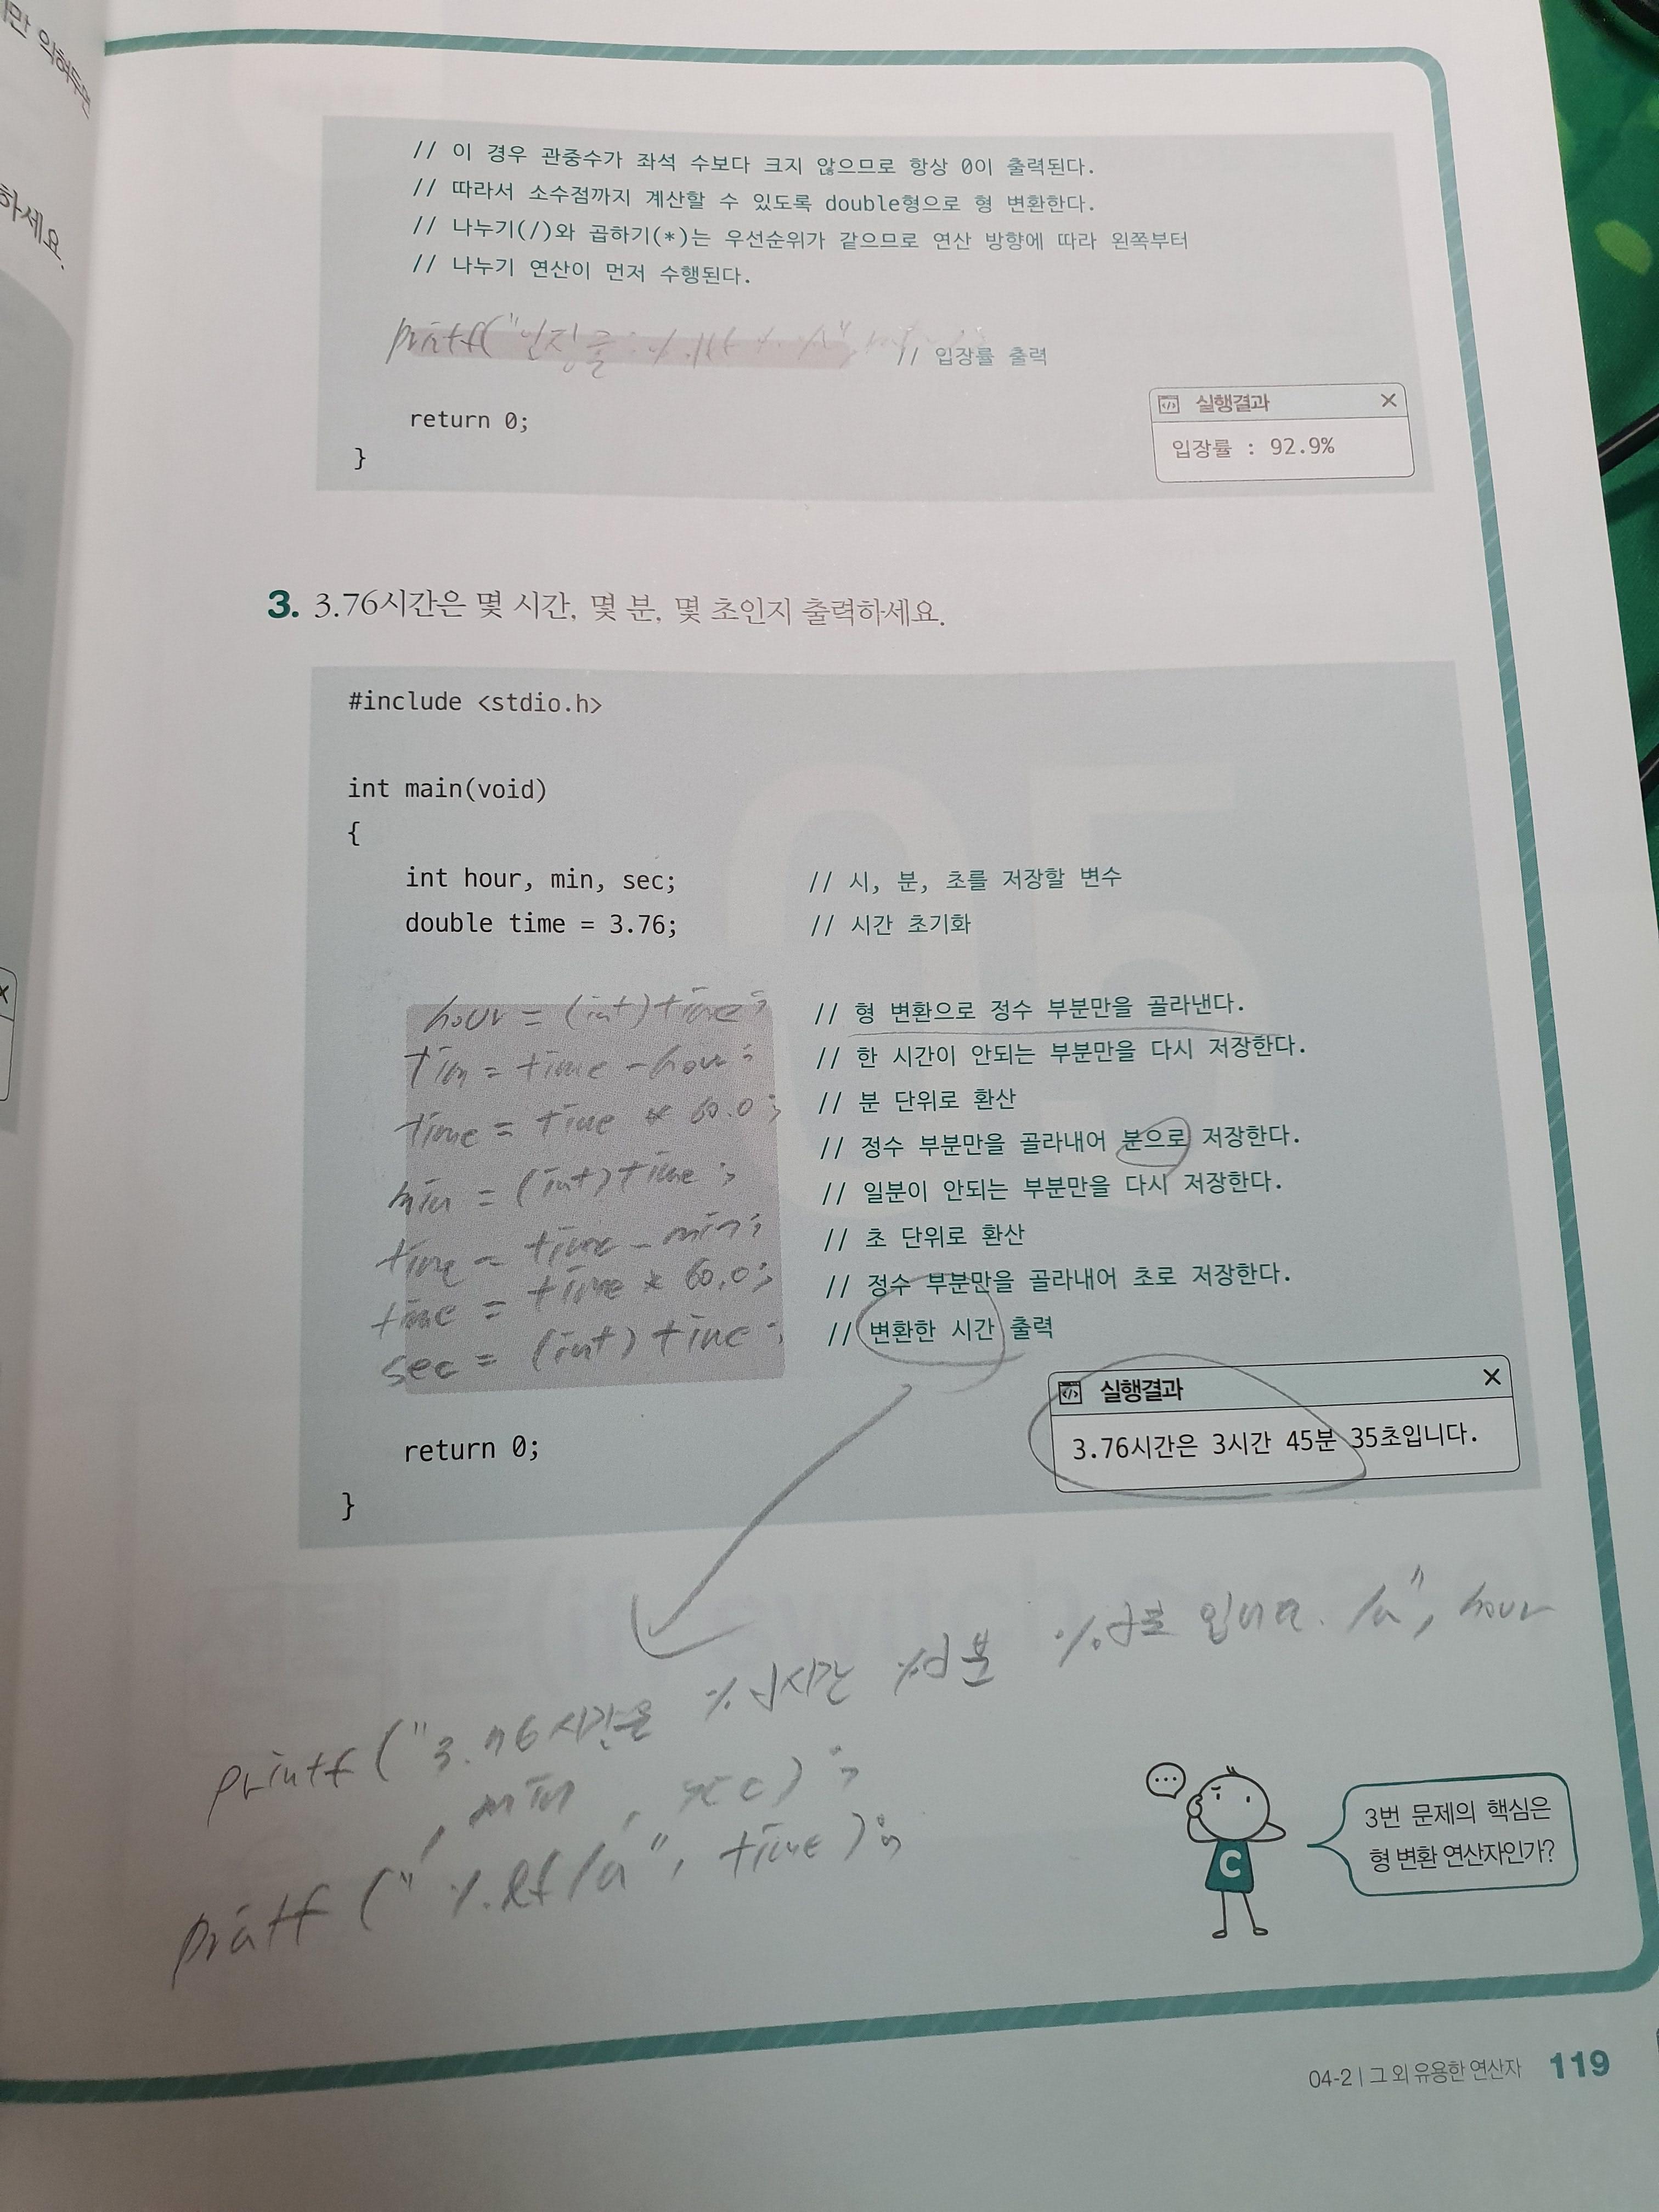 하세요.
// 이 경우 관중수가 좌석 수보다 크지 않으므로 항상 0이 출력된다.
// 따라서 소수점까지 계산할 수 있도록 double형으로 형 변환한다.
// 나누기(/)와 곱하기(*)는 우선순위가 같으므로 연산 방향에 따라 왼쪽부터
// 나누기 연산이 먼저 수행된다.
printf(" // 입장률 출력
return 0;
}
실행결과
입장률 : 92.9%
3. 3.76시간은 몇 시간, 몇 분, 몇 초인지 출력하세요.
#include <stdio.h>
int main(void)
{
int hour, min, sec; // 시, 분, 초를 저장할 변수
double time = 3.76; // 시간 초기화
hour = (int)time; // 형 변환으로 정수 부분만을 골라낸다.
= time - hour; // 한 시간이 안되는 부분만을 다시 저장한다.
time = time * 60.0; // 분 단위로 환산
min = (int)time; // 정수 부분만을 골라내어 분으로 저장한다.
time = time - min; // 일분이 안되는 부분만을 다시 저장한다.
time = time * 60.0; // 초 단위로 환산
sec = (int)time; // 정수 부분만을 골라내어 초로 저장한다.
// 변환한 시간 출력
return 0;
}
실행결과
3.76시간은 3시간 45분 35초입니다.
printf("3.76시간은 %d시간 %d분 %d초 입니다. /n", hour
, min , sec);
printf("%.lf/n", time);
3번 문제의 핵심은
형 변환 연산자인가?
C
04-2 | 그 외 유용한 연산자 119